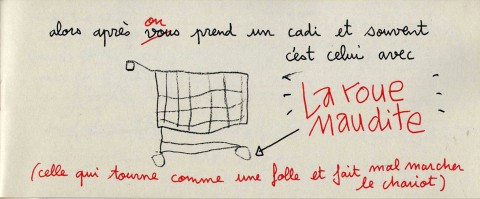 alors après on vous prend un cadi et souvent
c'est celui avec
La roue
maudite
(celle qui tourne comme une folle et fait mal marcher
le chariot)